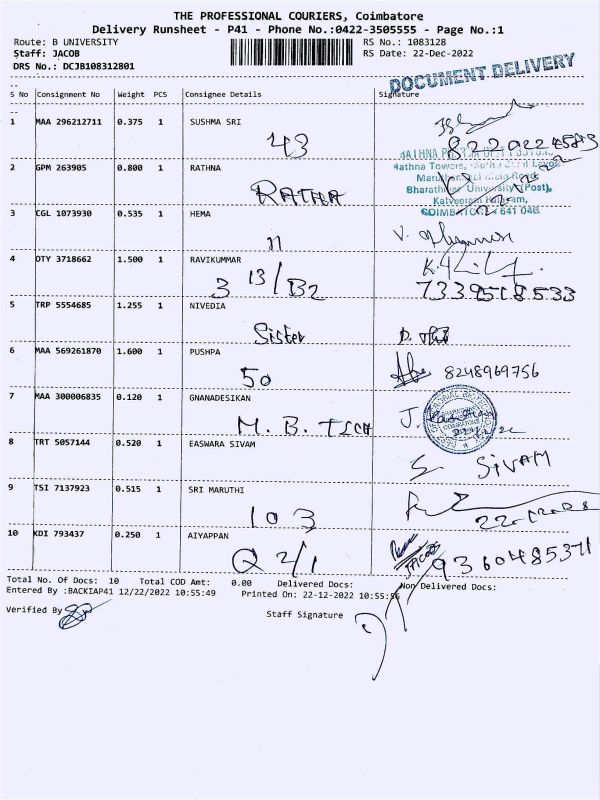 THE PROFESSIONAL COURIERS, Coimbatore
Delivery Runsheet - P41 - Phone No.:0422-3505555 - Page No.:1
Route: B UNIVERSITY
RS No.: 1083128
Staff: JACOB
RS Date: 22-Dec-2022
DRS No.: DCJB108312801
DOCUMENT DELIVERY
S No Consignment No Weight PCS Consignee Details Signature
1 MAA 296212711 0.375 1 SUSHMA SRI
43
2 GPM 263905 0.800 1 RATHNA
RATHA
Rathna Towers,
Bharathiar University (Post),
COIMBATORE - 641 046
3 CGL 1073930 0.535 1 HEMA
11
4 OTY 3718662 1.500 1 RAVIKUMMAR
3 13/B2
7339518533
5 TRP 5554685 1.255 1 NIVEDIA
Sister
6 MAA 569261870 1.600 1 PUSHPA
50
8248969756
7 MAA 300006835 0.120 1 GNANADESIKAN
M. B. TECH
8 TRT 5057144 0.520 1 EASWARA SIVAM
S. SIVAM
9 TSI 7137923 0.515 1 SRI MARUTHI
103
10 KDI 793437 0.250 1 AIYAPPAN
Q 2/1
JACOB
9360485371
Total No. Of Docs: 10 Total COD Amt: 0.00 Delivered Docs: Non Delivered Docs:
Entered By :BACKIAP41 12/22/2022 10:55:49 Printed On: 22-12-2022 10:55:56
Verified By
Staff Signature